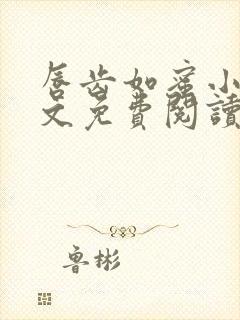 唇齿如蜜小
文免費閱讀
鲁彬